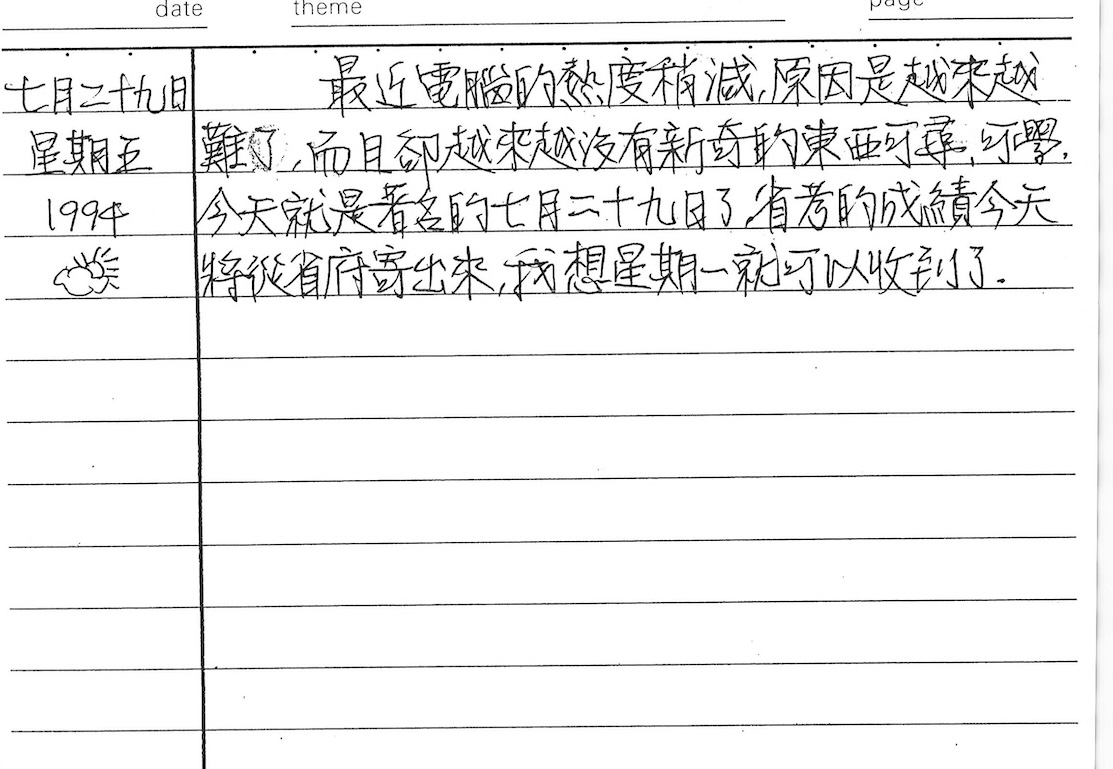 date theme page
七月二十九日 最近電腦的熱度稍減,原因是越來越
星期五 難了,而且卻越來越沒有新奇的東西可尋,可學.
1994 今天就是著名的七月二十九日了,省考的成績今天
將從省府寄出來,我想星期一就可以收到了.